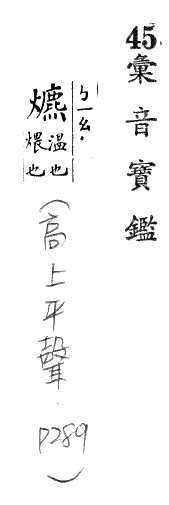 45.彙音寶鑑
爊 ㄅㄧㄠ.
溫也
煨也
(高上平聲. P289)